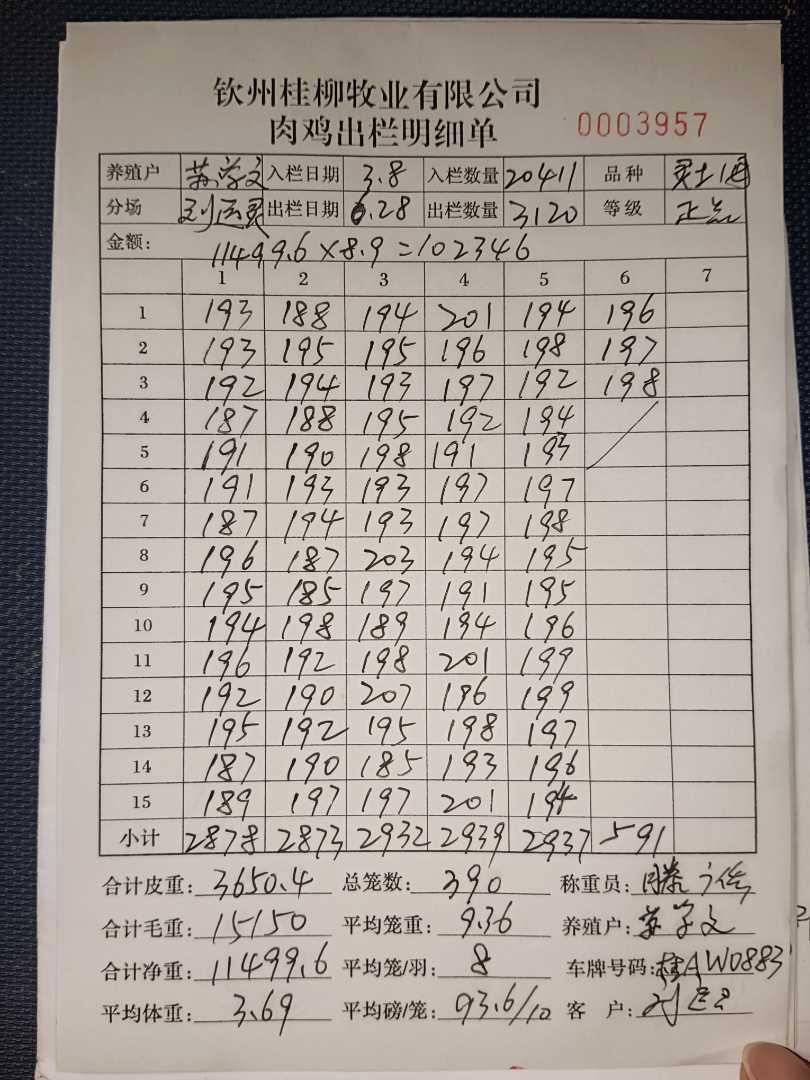 钦州桂柳牧业有限公司
肉鸡出栏明细单 0003957
养殖户 苏学文 入栏日期 3.8 入栏数量 20411 品种
分场 出栏日期 6.28 出栏数量 3120 等级
金额: 11499.6×8.9=102346
1 2 3 4 5 6 7
1 193 188 194 201 194 196
2 193 195 195 196 198 197
3 192 194 193 197 192 198
4 187 188 195 192 194
5 191 190 198 191 193
6 191 193 193 197 197
7 187 194 193 197 198
8 196 187 203 194 195
9 195 185 197 191 195
10 194 198 189 194 196
11 196 192 198 201 199
12 192 190 207 196 199
13 195 192 195 198 197
14 187 190 185 193 196
15 189 197 197 201 194
小计 2878 2873 2932 2939 2937 591
合计皮重: 3650.4 总笼数: 390 称重员:
合计毛重: 15150 平均笼重: 9.36 养殖户: 苏学文
合计净重: 11499.6 平均笼/羽: 8 车牌号码: 桂AW0883
平均体重: 3.69 平均磅/笼: 93.6/10 客 户: